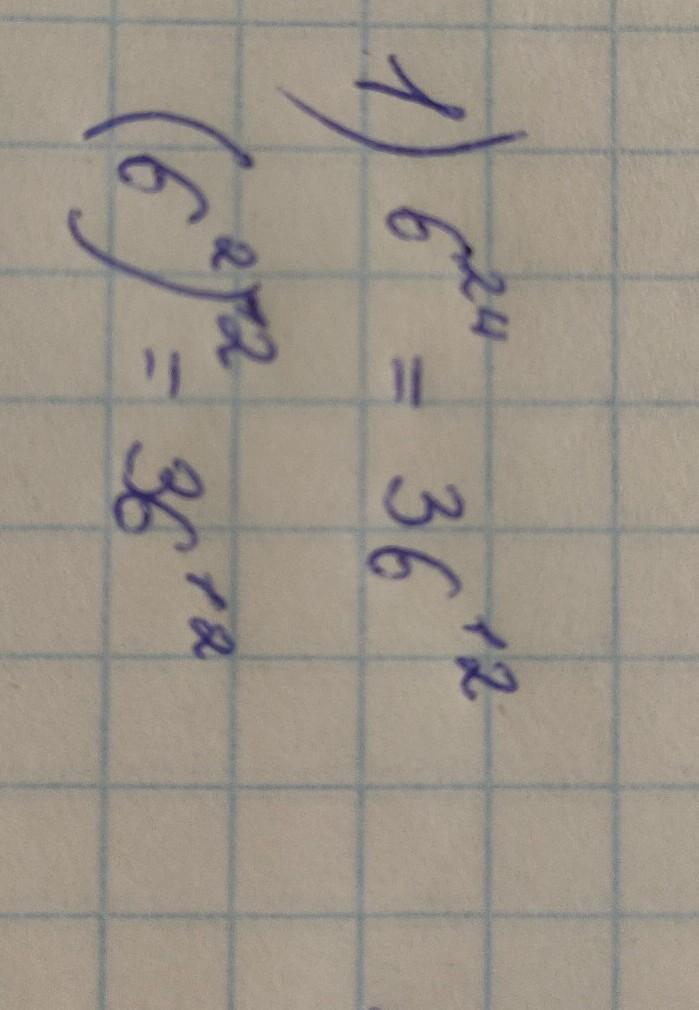 1) 6²⁴ = 36¹²
(6²)¹² = 36¹²